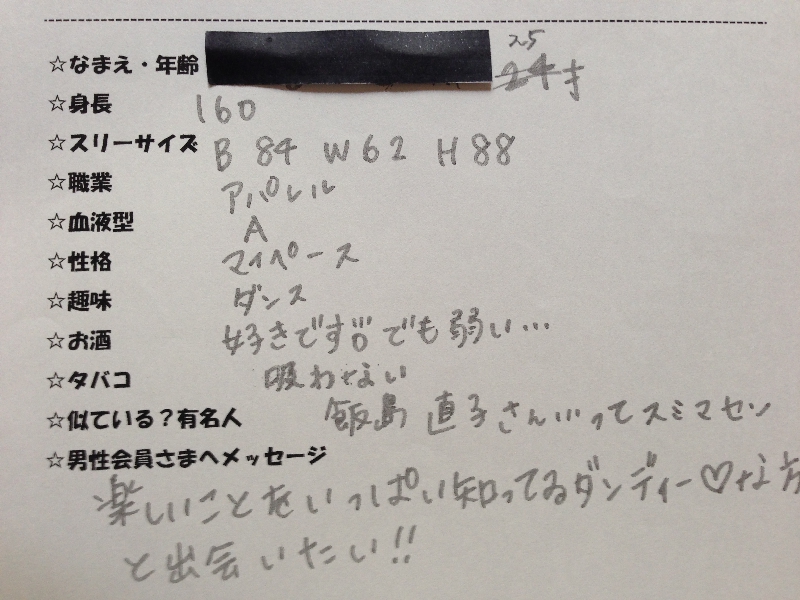 ☆なまえ・年齢 25 24才
☆身長 160
☆スリーサイズ B 84 W 62 H 88
☆職業 アパレル
☆血液型 A
☆性格 マイペース
☆趣味 ダンス
☆お酒 好きです!! でも弱い…
☆タバコ 吸わない
☆似ている?有名人 飯島直子さん…ってスミマセン
☆男性会員さまへメッセージ
楽しいことをいっぱい知ってるダンディー♡な方
と出会いたい!!